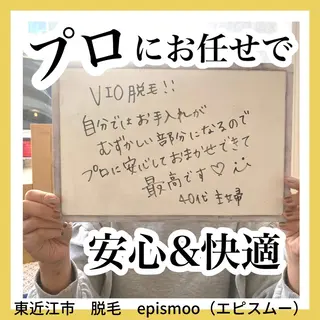 プロにお任せで
VIO脱毛!!
自分ではお手入れが
むずかしい部分になるので
プロに安心しておまかせできて
最高です♡
40代 主婦
安心&快適
東近江市 脱毛 epismoo（エピスムー）